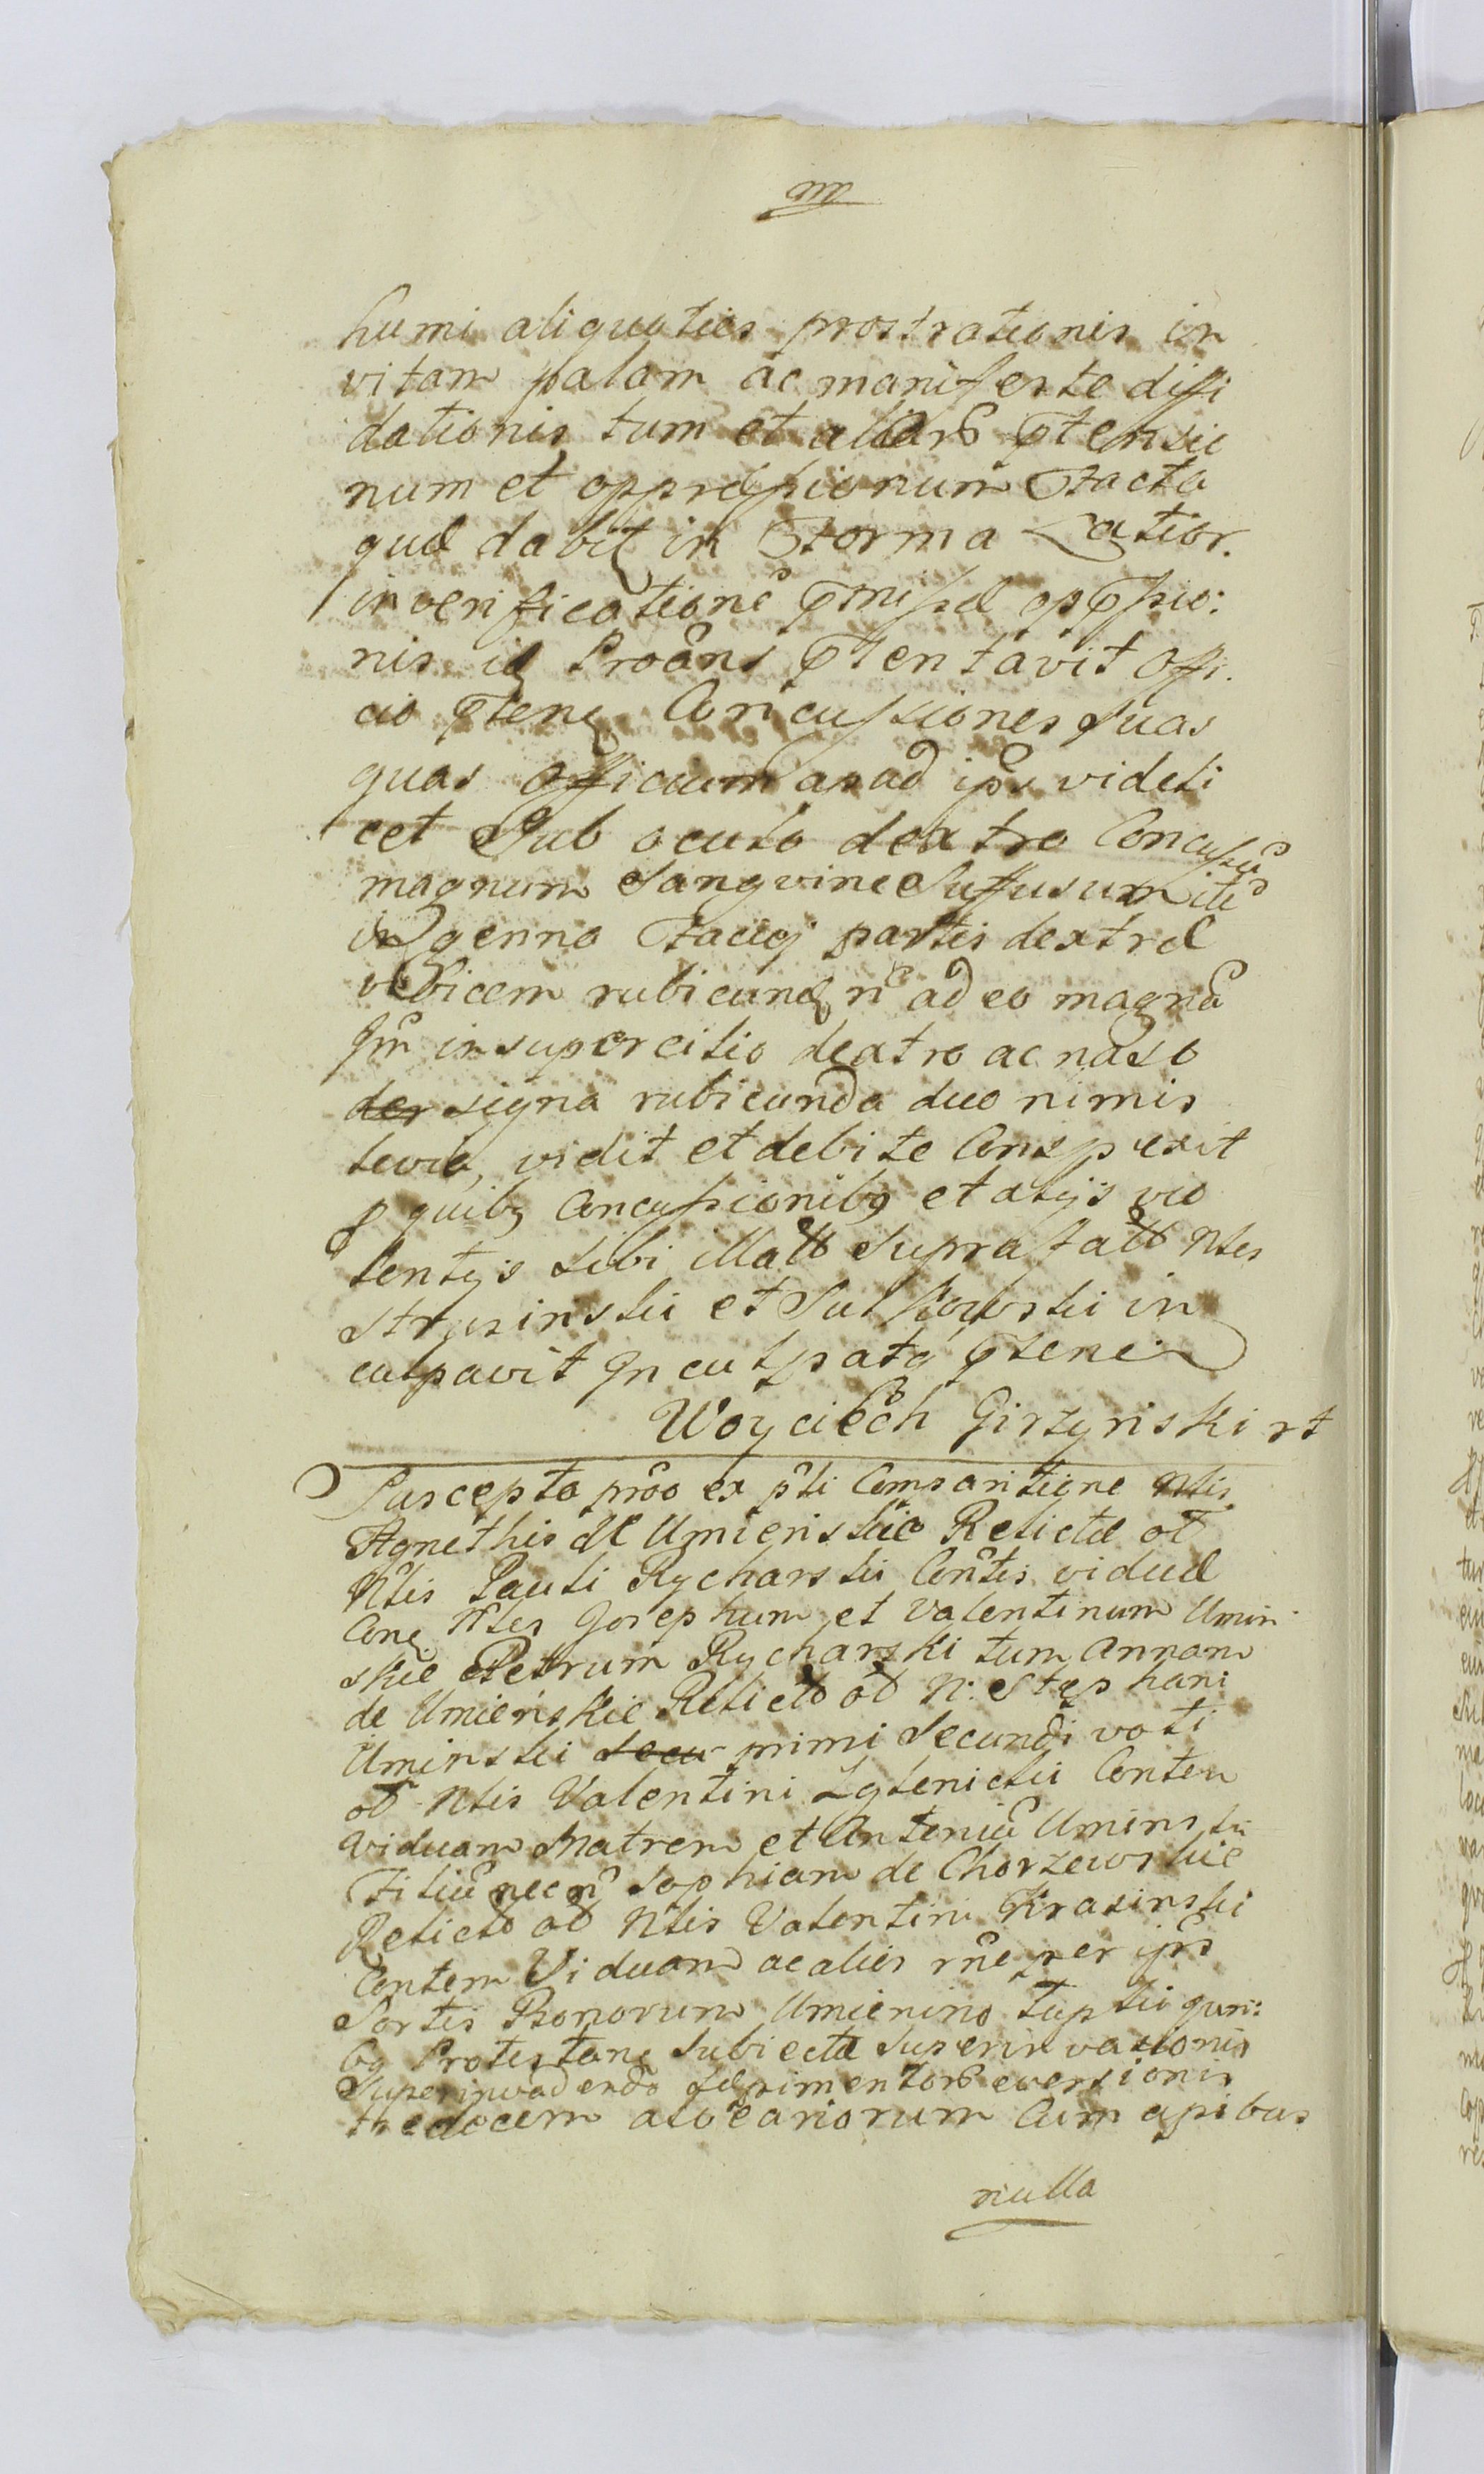 m
humi aliquoties prostrationis in
vitam palam ac manifeste diffi
dationis tum et aliarũ ꝑtensio
num et oppressionum Facta
quæ dabit in Forma Latior.
in verificatione ꝑmissæ opꝑssio:
nis id Proãns ꝑsentavit offi.
cio ꝑsenti Concussiones suas
quas officium apad ipõ videli
cet sub oculo dextro Concussũ
magnum sangvine suffusum itẽ
in genno Faciej partis dextræ
vibicem rubicund nõ ad eo magnã
Itm̃ in supercilio dextro ac naso
der signa rubicunda duo nimis
levia, vidit et debite Conspexit
p quibꝫ Concussionibꝫ et alijs vio
lentijs sibi illatis suprafatos Nles
Strusinski et Sutkowski in
culpavit Inculpatq ꝑsene
Woyciech Girzyński rt
Suscepta proõ ex pti Comparitione Nlis
Agnethis de Umienskie Relictæ oł
Nlis Pauli Rycharski Contis viduæ
Conꝫ Nles Josephum et Valentinum Umin
skie Petrum Rycharski tum Annam
de Umieńskie Relictã oł N: Stephani
Uminski secu primi secundi voti
oł Nlis Valentini Zglenicki Contem
viduam Matrem et Antoniũ Uminski
Filiũ necnõ Sophiam de Chorzewskie
Relictã oł Nlis Valentini Krasinski
Contem Viduam ac alies rñe per ipõ
Sortis Bonorum Umienino Łupski quri:
bꝫ Protestanꝫ subiectæ superinvasionis
superinvadendo sæpimentorũ eversionis
tredecem alveariorum Cum apibus
nulla